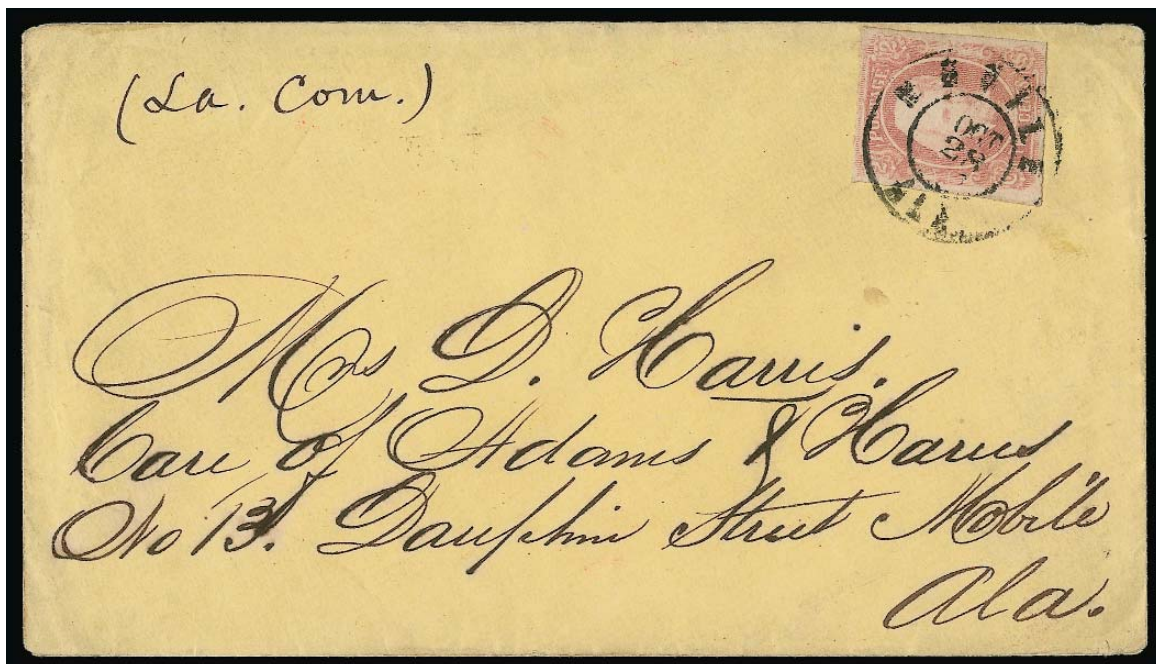 (La. Com.)
OCT
28
Mrs D. Harris.
Care of Adams & Harris
No 13. Dauphin Street Mobile
Ala.